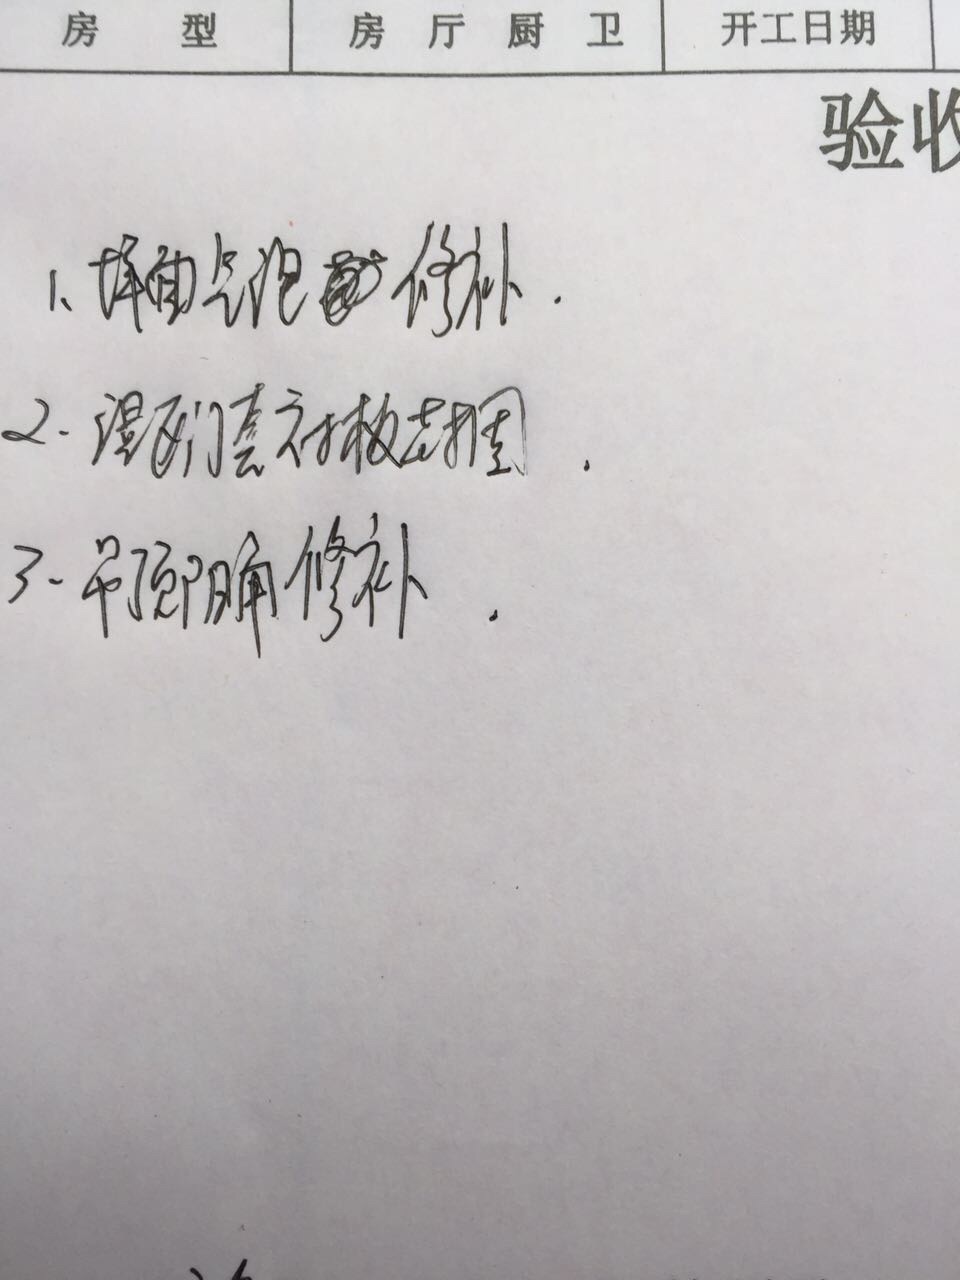 房 型 房 厅 厨 卫 开工日期
验收
1、墙面气泡 修补.
2. 湿区门套衬板封固.
3. 吊顶阴角修补.